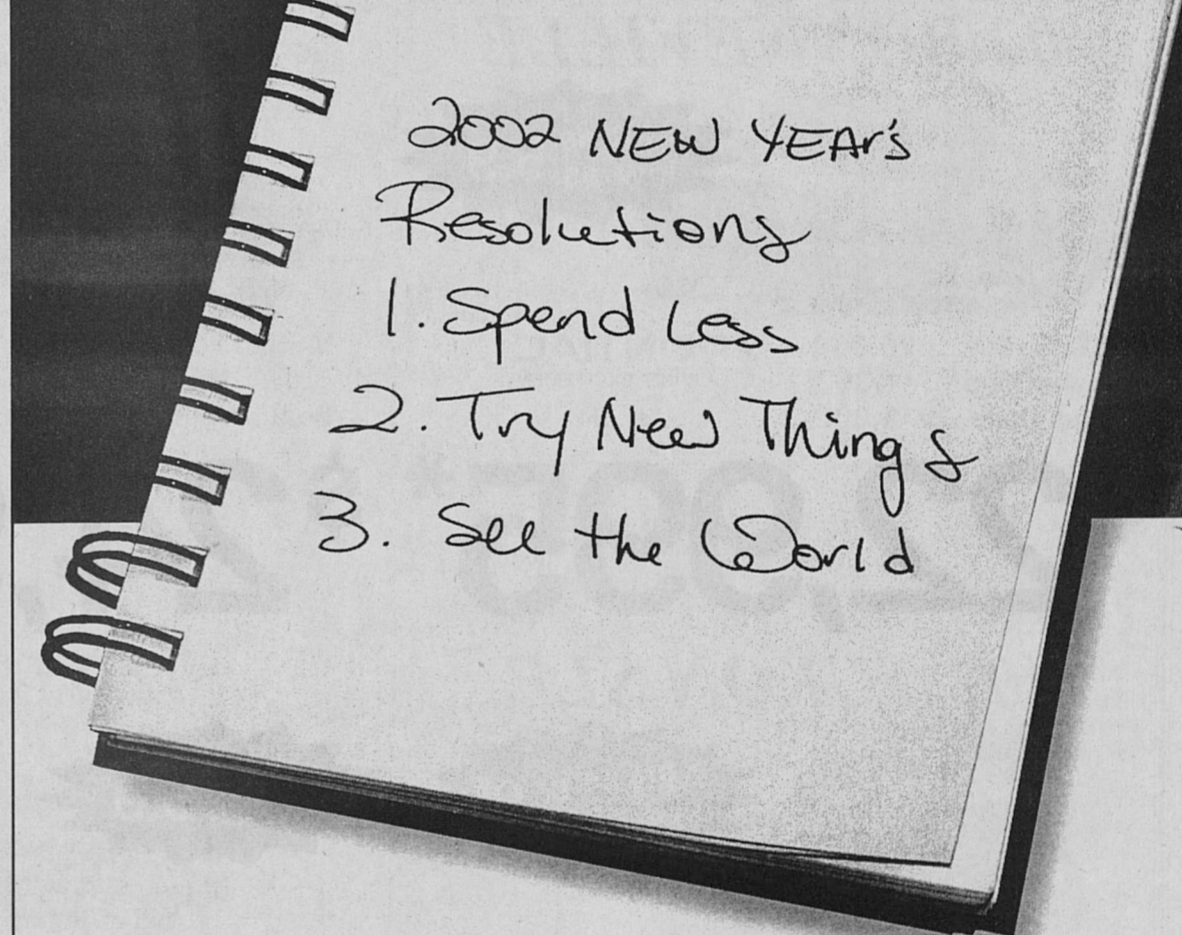 2002 NEW YEAr's
Resolutions
1. Spend Less
2. Try New Things
3. See the World